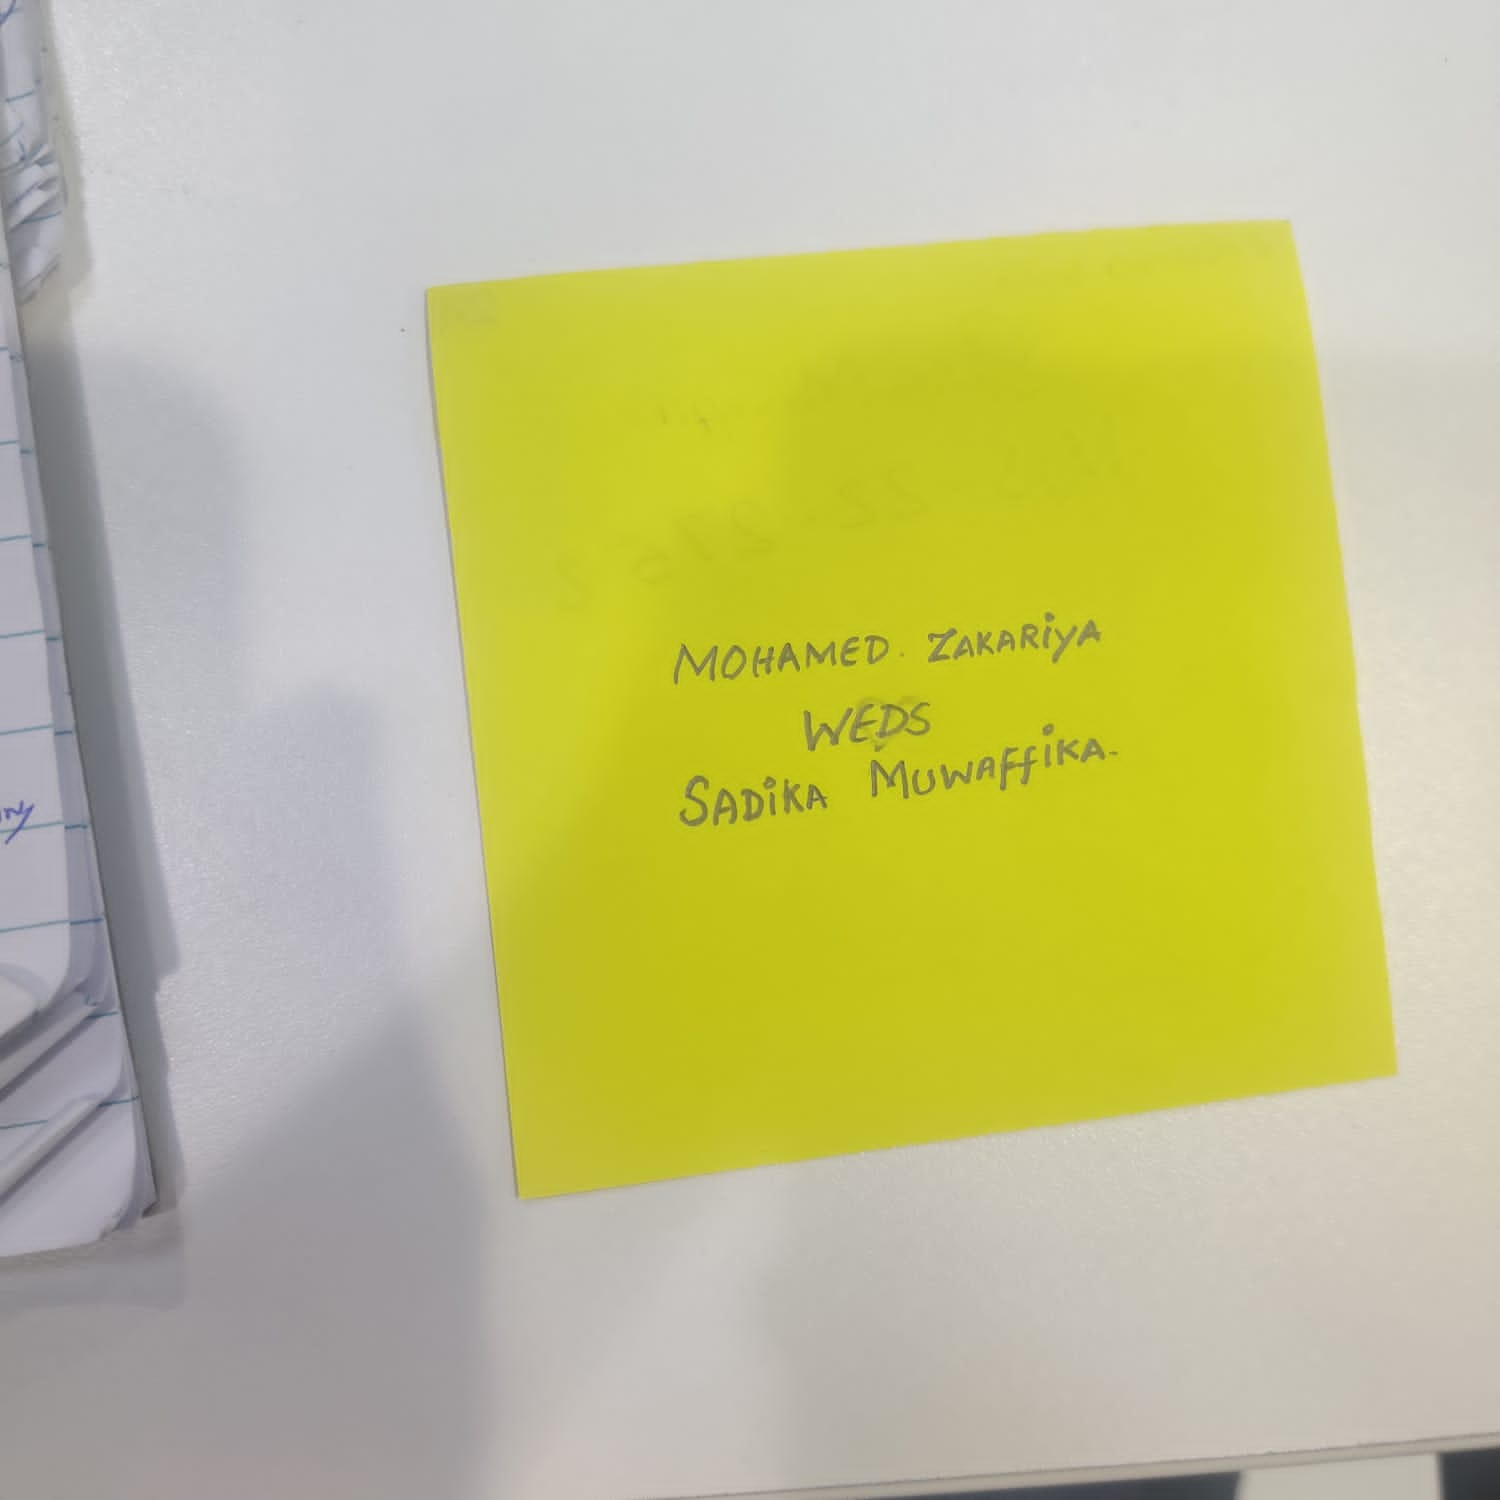 MOHAMED. ZAKARIYA
WEDS
SADIKA MUWAFFIKA.